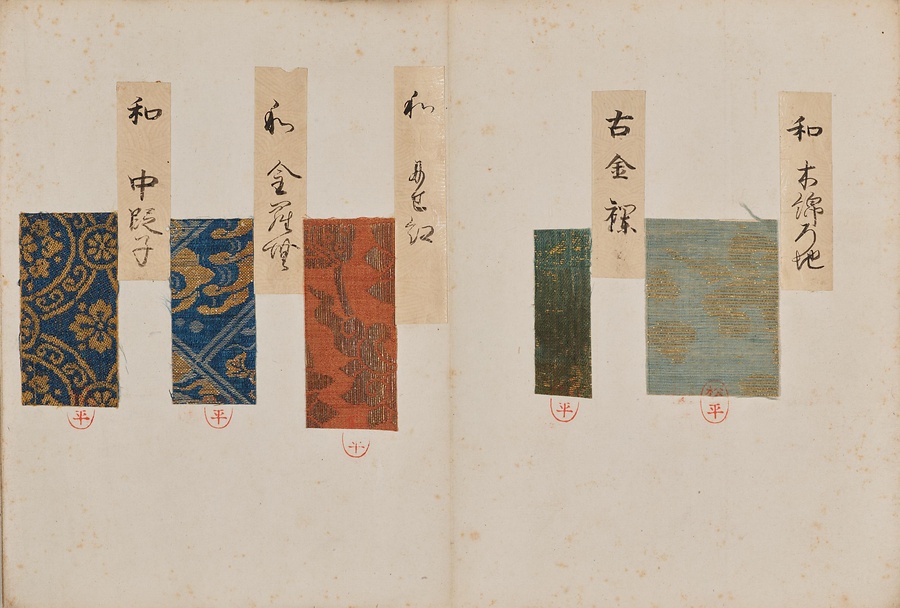 和 木綿ろ地
古金襴
和
和 金羅
和 中段子
松平
平
平
平
平